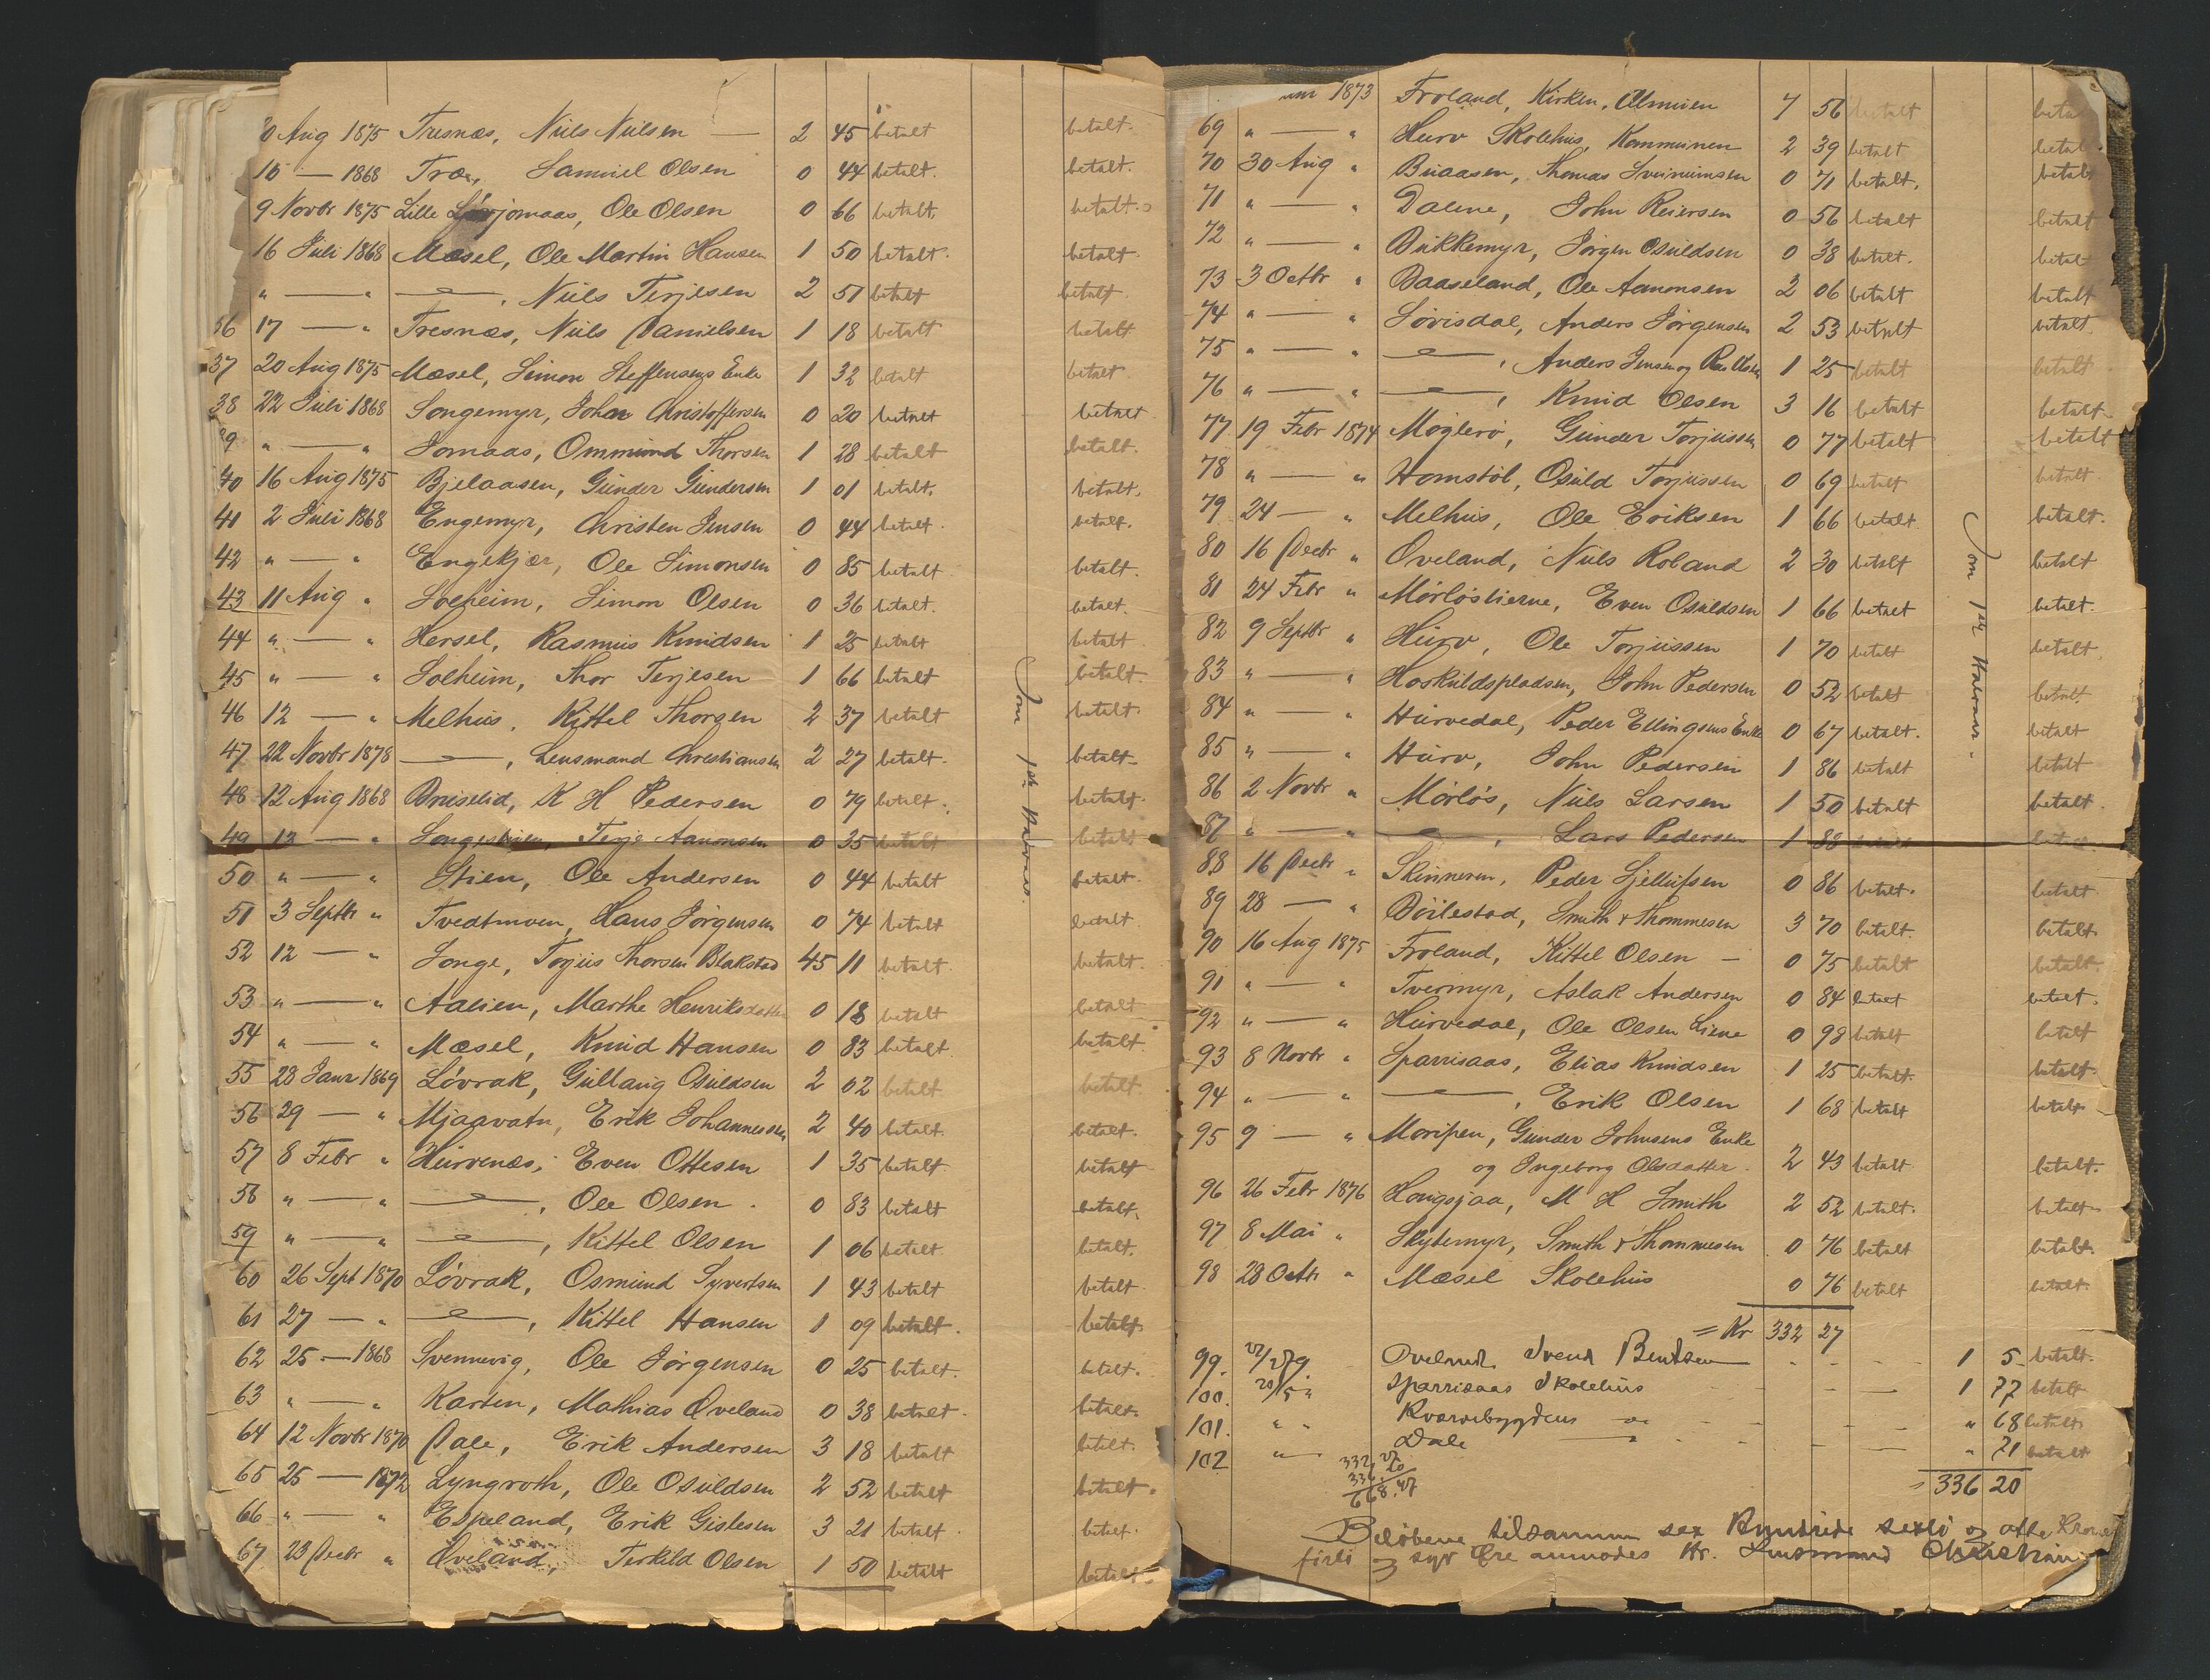 Aug 1875 Tresnæs, Niels Nielsen — 2 45 betalt betalt.
15 — 1868 Træe, Samuel Olsen 0 44 betalt. betalt.
9 Novbr 1875 Lille jomaas, Ole Olsen 0 66 betalt. betalt.
16 Juli 1868 Mæsel, Ole Martin Hansen 1 50 betalt. betalt.
" — " —"—, Niels Terjesen 2 51 betalt betalt.
36 17 — " Tresnæs, Niels Danielsen 1 18 betalt betalt
37 20 Aug 1875 Mæsel, Simon Steffensens Enke 1 32 betalt betalt.
38 22 Juli 1868 Songemyr, John Christoffersen 0 20 betalt betalt
39 " — " Jomaas, Ommund Thorsen 1 28 betalt betalt.
40 16 Aug 1875 Bjelaasen, Gunder Gundersen 1 01 betalt. betalt.
41 2 Juli 1868 Engemyr, Christen Jensen 0 44 betalt. betalt.
42 " — " Engekjær, Ole Simonsen 0 85 betalt betalt.
43 11 Aug " Solheim, Simon Olsen 0 36 betalt. betalt.
44 " — " Hersel, Rasmus Knudsen 1 25 betalt betalt
45 " — " Solheim, Thor Terjesen 1 66 betalt betalt.
46 12 — " Melhus, Kittel Thorsen 2 37 betalt betalt.
47 22 Novbr 1878 —"—, Lensmand Christiansen 2 27 betalt. betalt.
48 12 Aug 1868 Bruselid, K H Pedersen 0 79 betalt. betalt.
49 13 — " Songestien, Terje Aanonsen 0 35 betalt betalt
50 " — " Stien, Ole Andersen 0 44 betalt betalt.
51 3 Septbr " Tvedtmoen, Hans Jørgensen 0 74 betalt betalt.
52 12 — " Songe, Torjus Thorsen Blakstad 45 11 betalt betalt.
53 " — " Aalien, Marthe Henriksdatter 0 18 betalt betalt
54 " — " Mæsel, Knud Hansen 0 83 betalt. betalt.
55 28 Janr 1869 Løvrak, Gullaug Osuldsen 2 02 betalt betalt.
56 29 — " Mjaavatn, Erik Johannessen 2 40 betalt. betalt.
57 8 Febr " Hurvenæs, Even Ottesen 1 35 betalt. betalt
58 " — " —"—, Ole Olsen. 0 83 betalt betalt.
59 " — " —"—, Kittel Olsen 1 06 betalt. betalt.
60 26 Sept 1870 Løvrak, Osmund Syvertsen 1 43 betalt betalt.
61 27 — " —"—, Kittel Hansen 1 09 betalt. betalt.
62 25 — 1868 Svennevig, Ole Jørgensen 0 25 betalt. betalt.
63 " — " Karten, Mathias Øveland 0 38 betalt. betalt.
64 12 Novbr 1870 Dale, Erik Andersen 3 18 betalt betalt.
65 25 — 1872 Lyngroth, Ole Osuldsen 2 52 betalt betalt.
66 " — " Espeland, Erik Gislesen 3 21 betalt. betalt.
67 23 Decbr " Øveland, Terkild Olsen 1 50 betalt betalt.
Som 1ste Halvaar.
1873 Froland, Kirken, Almuen 7 56 betalt beta
69 " — " Hurv Skolehus, Kommunen 2 39 betalt betal
70 30 Aug " Buaasen, Thomas Sveinumsen 0 71 betalt. betalt
71 " — " Dalene, John Reiersen 0 56 betalt betalt
72 " — " Bukkemyr, Jørgen Osuldsen 0 38 betalt. betalt
73 3 Octbr " Baaseland, Ole Aanonsen 2 06 betalt betalt
74 " — " Løvisdal, Anders Jørgensen 2 53 betalt betalt
75 " — " —"—, Anders Jensen og 1 25 betalt betalt
76 " — " —"—, Knud Olsen 3 16 betalt betalt.
77 19 Febr 1874 Møglerø, Gunder Torjussen 0 77 betalt betalt
78 " — " Homstøl, Osuld Torjussen 0 69 betalt betalt.
79 24 — " Melhus, Ole Eriksen 1 66 betalt betalt.
80 16 Decbr " Øveland, Niels Roland 2 30 betalt betalt
81 24 Febr " Mørløstierne, Even Osuldsen 1 66 betalt betalt.
82 9 Septbr " Hurv, Ole Torjussen 1 70 betalt betalt
83 " — " Høskuldspladsen, John Pedersen 0 52 betalt betalt.
84 " — " Hurvedal, Peder Ellingsens Enke 0 67 betalt. betalt
85 " — " Hurv, John Pedersen 1 86 betalt betalt
86 2 Novbr " Mørløs, Niels Larsen 1 50 betalt betalt.
87 " — " —"—, Lars Pedersen 1 88
88 16 Decbr " Skinneren, Peder 0 86 betalt. betalt
89 28 — " Bøilestad, Smith & Thommesen 3 70 betalt. betalt.
90 16 Aug 1875 Froland, Kittel Olsen — 0 75 betalt betalt.
91 " — " Tvermyr, Aslak Andersen 0 84 betalt betalt.
92 " — " Hurvedal, Ole Olsen Liene 0 98 betalt betalt
93 8 Novbr " Sparrisaas, Elias Knudsen 1 25 betalt. betalt.
94 " — " —"—, Erik Olsen 1 68 betalt betalt
95 9 — " Moripen, Gunder Johnsens Enke
og Ingeborg Olsdatter. 2 43 betalt betalt.
96 26 Febr 1876 Hougsjaa, M H Smith 2 52 betalt. betalt.
97 8 Mai " Skytemyr, Smith & Thommesen 0 76 betalt betalt.
98 28 Octbr " Mæsel Skolehus 0 76 betalt betalt.
= Kr 332 27
99. Svend Bentsen 1 5 betalt.
100. 20/5 " Sparrisaas Skolehus 1 77 betalt
101. " " " 68 betalt
102 " Dale " 71 betalt
332,27
336,20
668.47
= 336 20
Som 1ste Halvaar.
Beløbene tilsammen sex hundrede sexti og otte Kroner
førti og syv Øre anmodes Hr. Lensmand